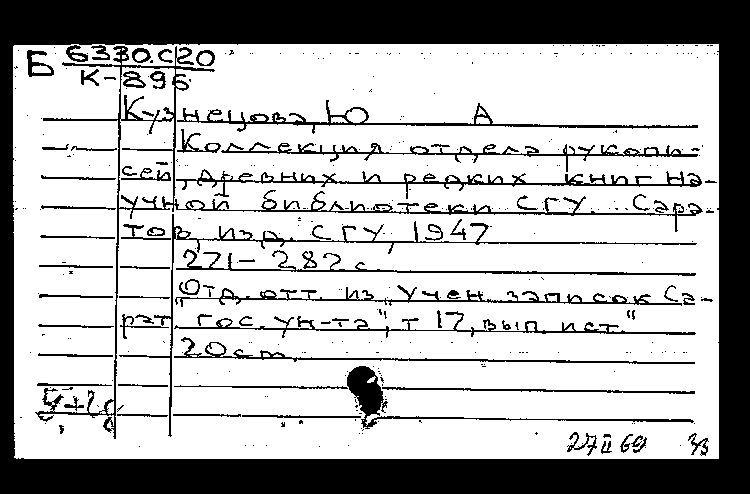 Б 6330.С20
К-896
Кузнецова, Ю А
Коллекция отдела рукопи-
сей, древних и редких книг На-
учной библиотеки СГУ. Сара-
тов, изд. СГУ, 1947
271-282 с.
"Отд. отт. из „Учен. записок Са-
рат. гос. ун-та", т 17, вып. ист."
20 см.
27 II 69